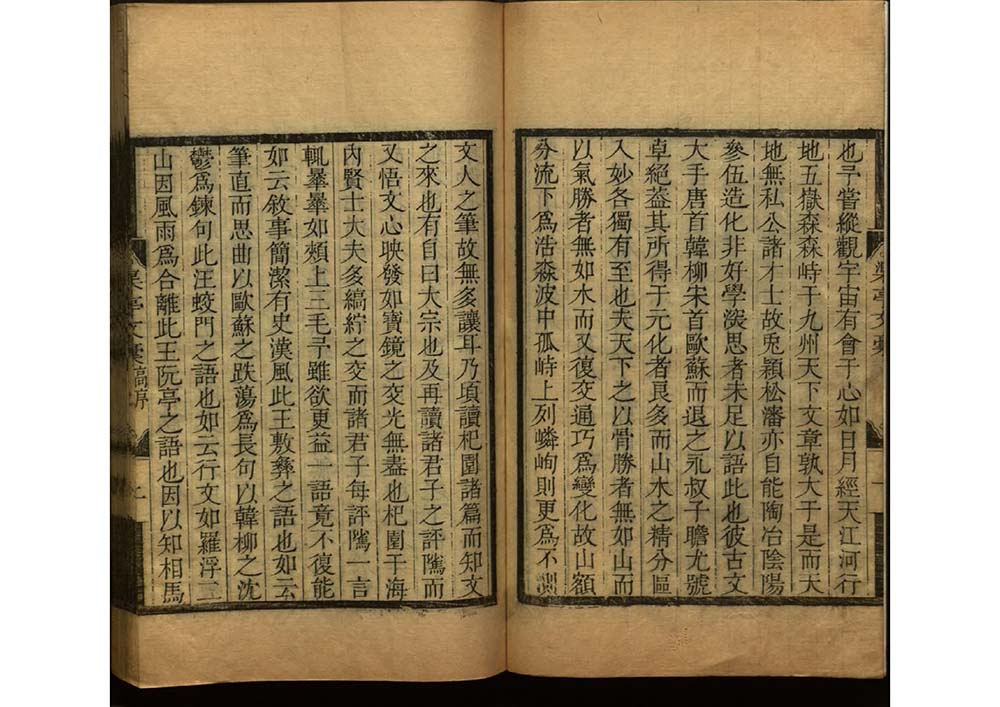 也予嘗縱觀宇宙有會于心如日月經天江河行
地五嶽森森峙于九州天下文章孰大于是而天
地無私公諸才士故兎穎松瀋亦自能陶冶陰陽
參伍造化非好學深思者未足以語此也彼古文
大手唐首韓柳宋首歐蘇而退之永叔子瞻尤號
卓絕蓋其所得于元化者良多而山水之精分區
入妙各獨有至也夫天下之以骨勝者無如山而
以氣勝者無如水而又復交通巧爲變化故山額
分流下爲浩淼波中孤峙上列嶙峋則更爲不測
文人之筆故無多讓耳乃頃讀杞園諸篇而知文
之來也有自曰大宗也及再讀諸君子之評隲而
又悟文心映發如寶鏡之交光無盡也杞園于海
內賢士大夫多縞紵之交而諸君子每評隲一言
輒纍纍如頰上三毛予雖欲更益一語竟不復能
如云敘事簡潔有史漢風此王敷彝之語也如云
筆直而思曲以歐蘇之跌蕩爲長句以韓柳之沈
鬱爲鍊句此汪蛟門之語也如云行文如羅浮二
山因風雨爲合離此王阮亭之語也因以知相馬
渠亭文稾